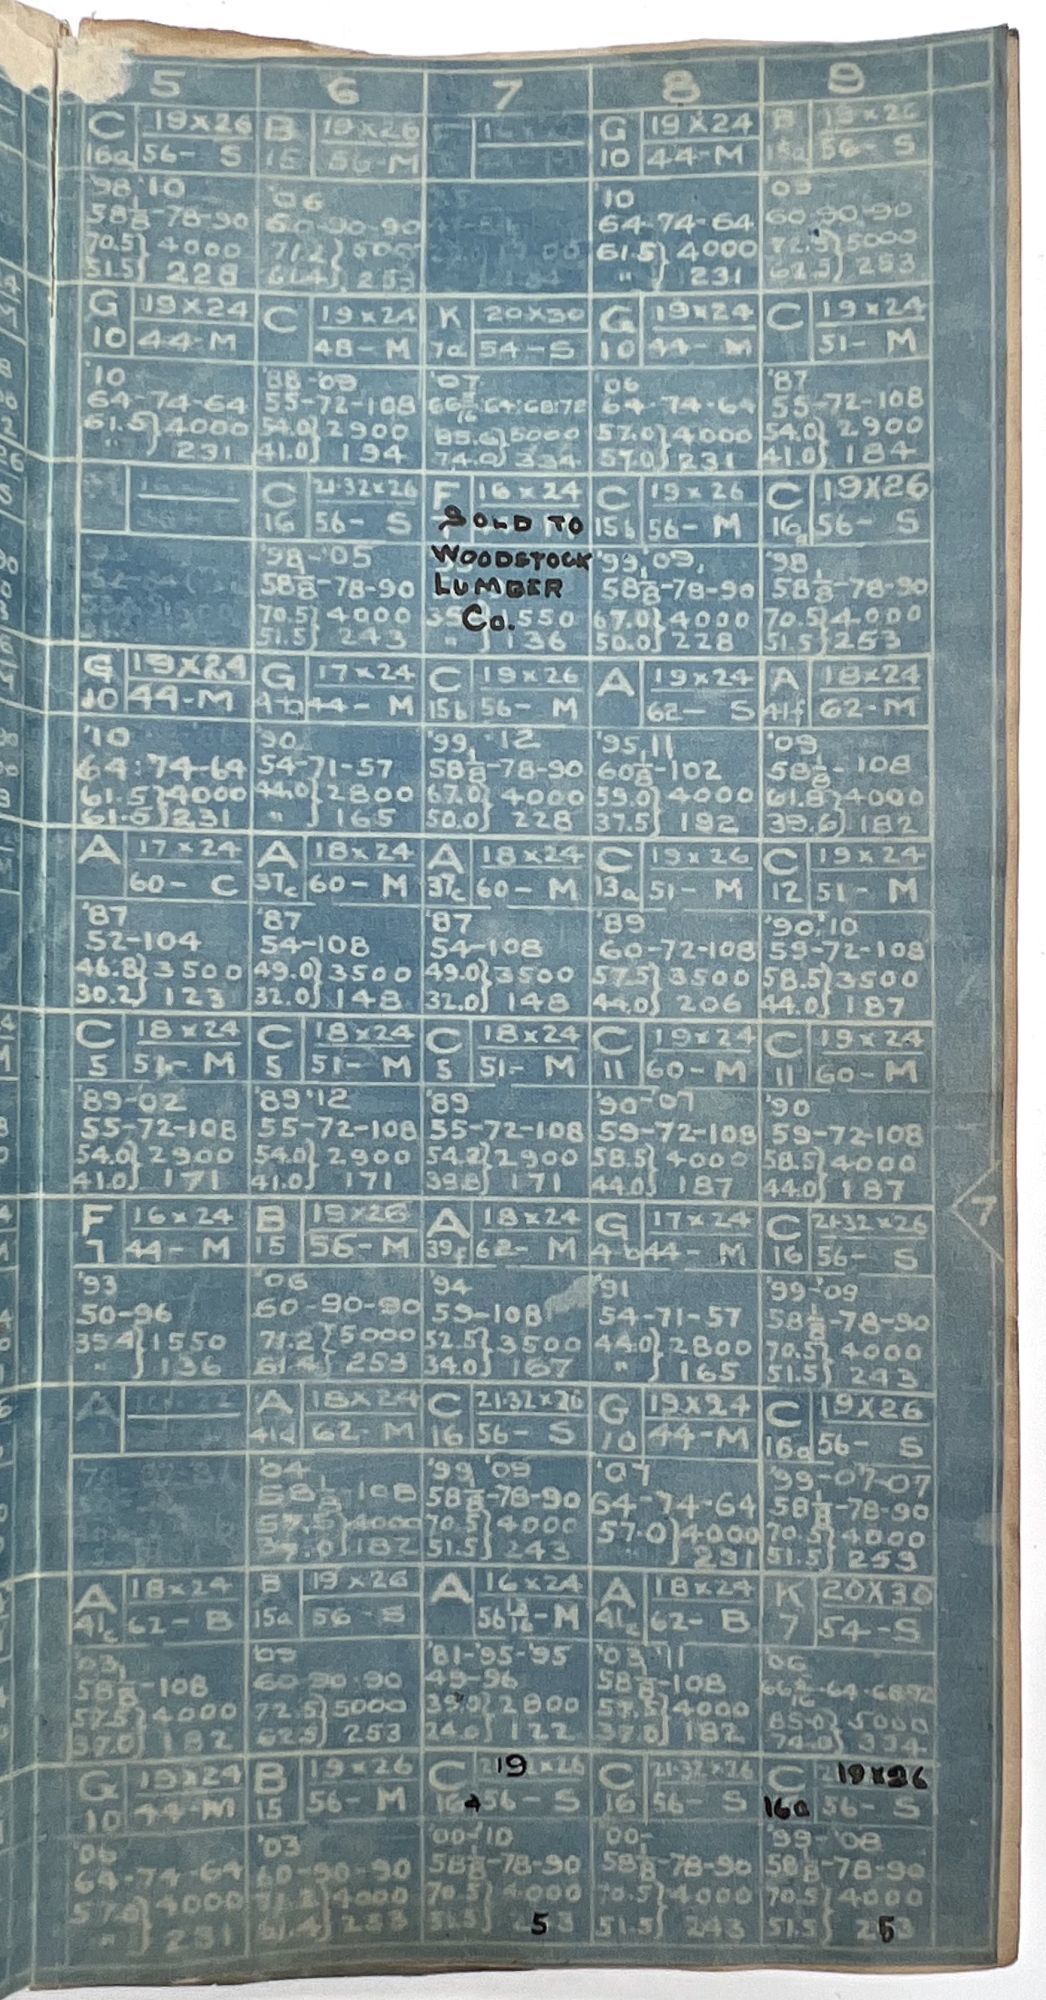 5 6 7 8 9
C 19×26 B 19×26 G 19×24 B 19×26
16a 56- S 15 56-M 10 44-M 15a 56- S
'98'10 '06 10 09
58⅛-78-90 60-90-90 64-74-64 60-90-90
70.5} 4000 71.2} 5000 61.5} 4000 72.5} 5000
51.5} 228 61.4} 253 " } 231 62.5} 253
G 19×24 C 19×24 K 20×30 G 19×24 C 19×24
10 44-M 48- M 7a 54-S 10 44- M 51- M
'10 '88-'09 '07 '06 '87
64-74-64 55-72-108 64:68:72 64-74-64 55-72-108
61.5} 4000 54.0} 2900 85.0} 5000 57.0} 4000 54.0} 2900
" } 231 41.0} 194 74.0} 334 57.0} 231 41.0} 184
C 21·32×26 F 16×24 C 19×26 C 19×26
16 56- S SOLD TO 15b 56- M 16a 56- S
'98-'05 WOODSTOCK '99,'09, '98,
58⅛-78-90 LUMBER 58⅛-78-90 58⅛-78-90
70.5} 4000 Co. 550 67.0} 4000 70.5} 4000
51.5} 243 " } 136 50.0} 228 51.5} 253
G 19×24 G 17×24 C 19×26 A 19×24 A 18×24
10 44-M 4b 44- M 15b 56- M 62- S 41f 62-M
'10 '90 '99,-'12 '95,11 '09
64:74-64 54-71-57 58⅛-78-90 60⅛-102 58⅛-108
61.5} 4000 44.0} 2800 67.0} 4000 55.0} 4000 61.8} 4000
61.5} 231 " } 165 50.0} 228 37.5} 192 39.6} 182
A 17×24 A 18×24 A 18×24 C 19×26 C 19×24
60- C 37c 60- M 37c 60- M 13a 51- M 12 51- M
'87 '87 '87 '89 '90,'10
52-104 54-108 54-108 60-72-108 59-72-108
46.8} 3500 49.0} 3500 49.0} 3500 57.5} 3500 58.5} 3500
30.2} 123 32.0} 148 32.0} 148 44.0} 206 44.0} 187
C 18×24 C 18×24 C 18×24 C 19×24 C 19×24
5 51- M 5 51- M 5 51- M 11 60- M 11 60- M
'89-02 '89'12 '89 '90-'07 '90
55-72-108 55-72-108 55-72-108 59-72-108 59-72-108
54.0} 2900 54.0} 2900 54.2} 2900 58.5} 4000 58.5} 4000
41.0} 171 41.0} 171 39.8} 171 44.0} 187 44.0} 187
7
F 16×24 B 19×26 A 18×24 G 17×24 C 21·32×26
7 44- M 15 56-M 39f 62- M 4b 44- M 16 56- S
'93 '06 '94 '91 '99-'09
50-96 60-90-90 59-108 54-71-57 58⅛-78-90
39.4} 1550 71.2} 5000 52.5} 3500 44.0} 2800 70.5} 4000
" } 136 61.4} 253 34.0} 167 " } 165 51.5} 243
A A 18×24 C 21·32×26 G 19×24 C 19×26
41d 62- M 16 56- S 10 44-M 16a 56- S
'04 '99'09 '07 '99-07-07
58⅛-108 58⅛-78-90 64-74-64 58⅛-78-90
57.5} 4000 70.5} 4000 57.0} 4000 70.5} 4000
37.0} 182 51.5} 243 } 231 51.5} 253
A 18×24 B 19×26 A 16×24 A 18×24 K 20×30
41c 62- B 15a 56- S -M 41c 62- B 7 54-S
'03, '09 '81-'95-'95 '03,'11 06
58⅛-108 60-90-90 49-96 58⅛-108 -64-68-72
57.5} 4000 72.5} 5000 39.0} 2800 57.5} 4000 85.0} 5000
37.0} 182 62.5} 253 24.0} 122 37.0} 182 74.0} 334
G 19×24 B 19×26 C 19 ×26 C 21·32×26 C 19×26
10 44-M 15 56- M 16a 56- S 16 56- S 16a 56- S
'06 '03 '00-'10 '00- '99-'08
64-74-64 60-90-90 58⅛-78-90 58⅛-78-90 58⅛-78-90
57.0} 4000 71.2} 4000 70.5} 4000 70.5} 4000 70.5} 4000
" } 231 61.4} 233 51.5} 253 51.5} 243 51.5} 253